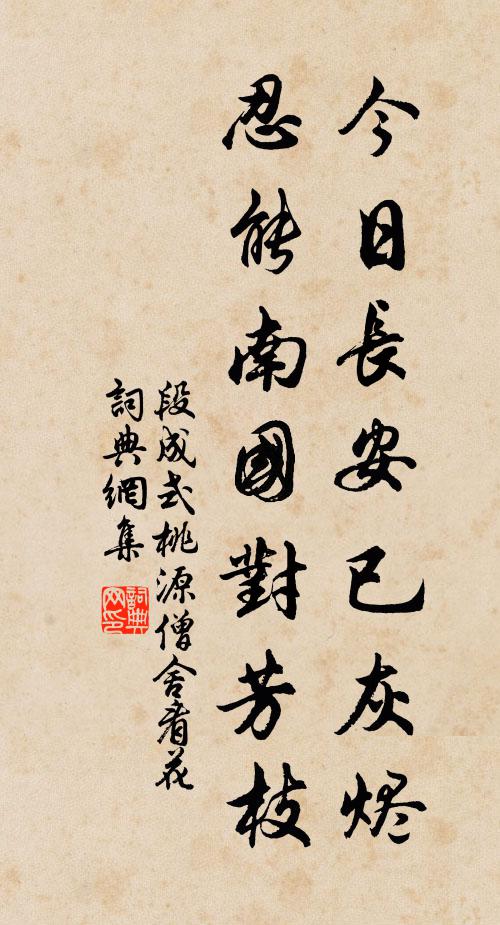 今日長安已灰烬
忍能南國對芳枝
段成式桃源僧舍看花
詞典網集
詞典网印